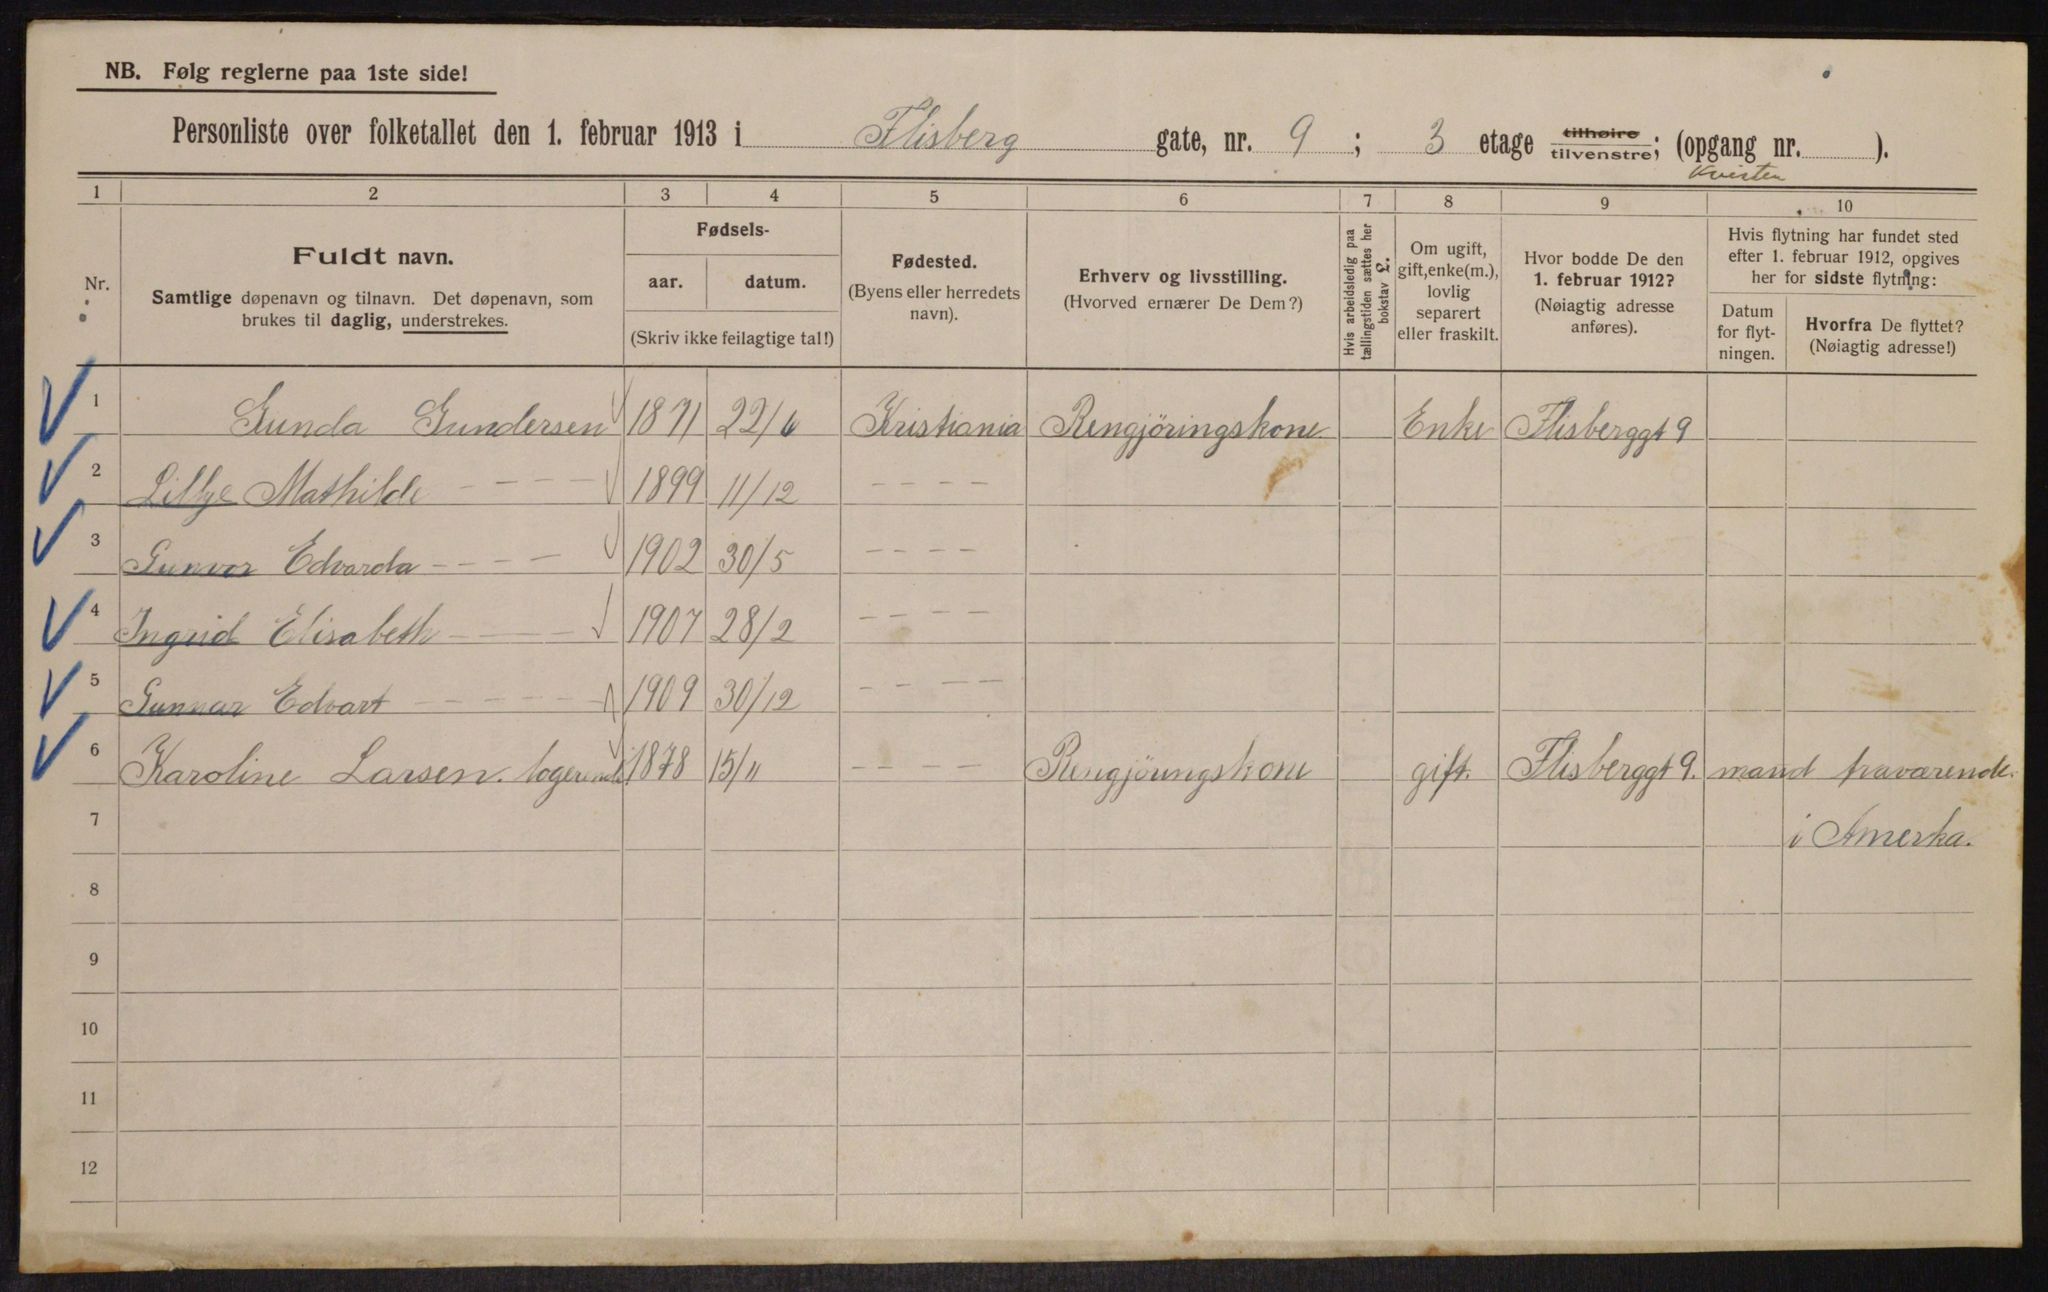 NB. Følg reglerne paa 1ste side!
Personliste over folketallet den 1. februar 1913 i Flisberg gate, nr. 9 ; 3 etage tilhøire tilvenstre; (opgang nr. ).
Kvisten
1 2 3 4 5 6 7 8 9 10
Nr.
Fuldt navn.
Samtlige døpenavn og tilnavn. Det døpenavn, som
brukes til daglig, understrekes.
Fødsels-
aar. datum.
(Skriv ikke feilagtige tal!)
Fødested.
(Byens eller herredets
navn).
Erhverv og livsstilling.
(Hvorved ernærer De Dem?)
Hvis arbeidsledig paa
tællingstiden sættes her
bokstav £.
Om ugift,
gift, enke(m.),
lovlig
separert
eller fraskilt.
Hvor bodde De den
1. februar 1912?
(Nøiagtig adresse
anføres).
Hvis flytning har fundet sted
efter 1. februar 1912, opgives
her for sidste flytning:
Datum
for flyt-
ningen.
Hvorfra De flyttet?
(Nøiagtig adresse!)
1 Gunda Gundersen 1871 22/6 Kristiania Rengjöringskone Enke Flisberggt 9
2 Lillye Mathilde - - - - 1899 11/12 - - - -
3 Gunvor Edvarda - - - - 1902 30/5 - - - -
4 Ingrid Elisabeth - - - 1907 28/2 - - - -
5 Gunnar Edvart - - - - 1909 30/12 - - - -
6 Karoline Larsen. logerende. 1878 15/11 - - - - Rengjöringskone gift. Flisberggt 9. mand fraværende.
7 i Amerka.
8
9
10
11
12